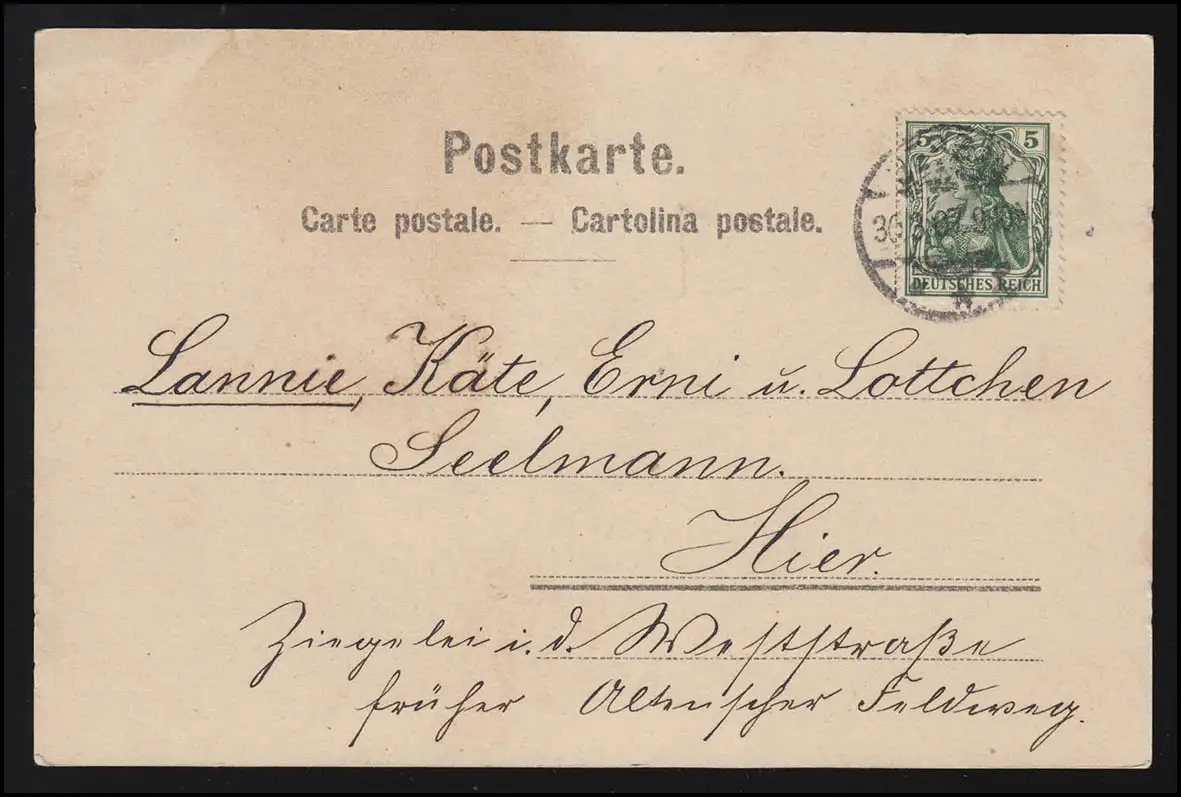 Postkarte.
Carte postale. — Cartolina postale.
5 5
DEUTSCHES REICH
Lannie, Käte, Erni u. Lottchen
Seelmann.
Hier.
Ziegelei i. d. Weststraße
früher Feldweg.